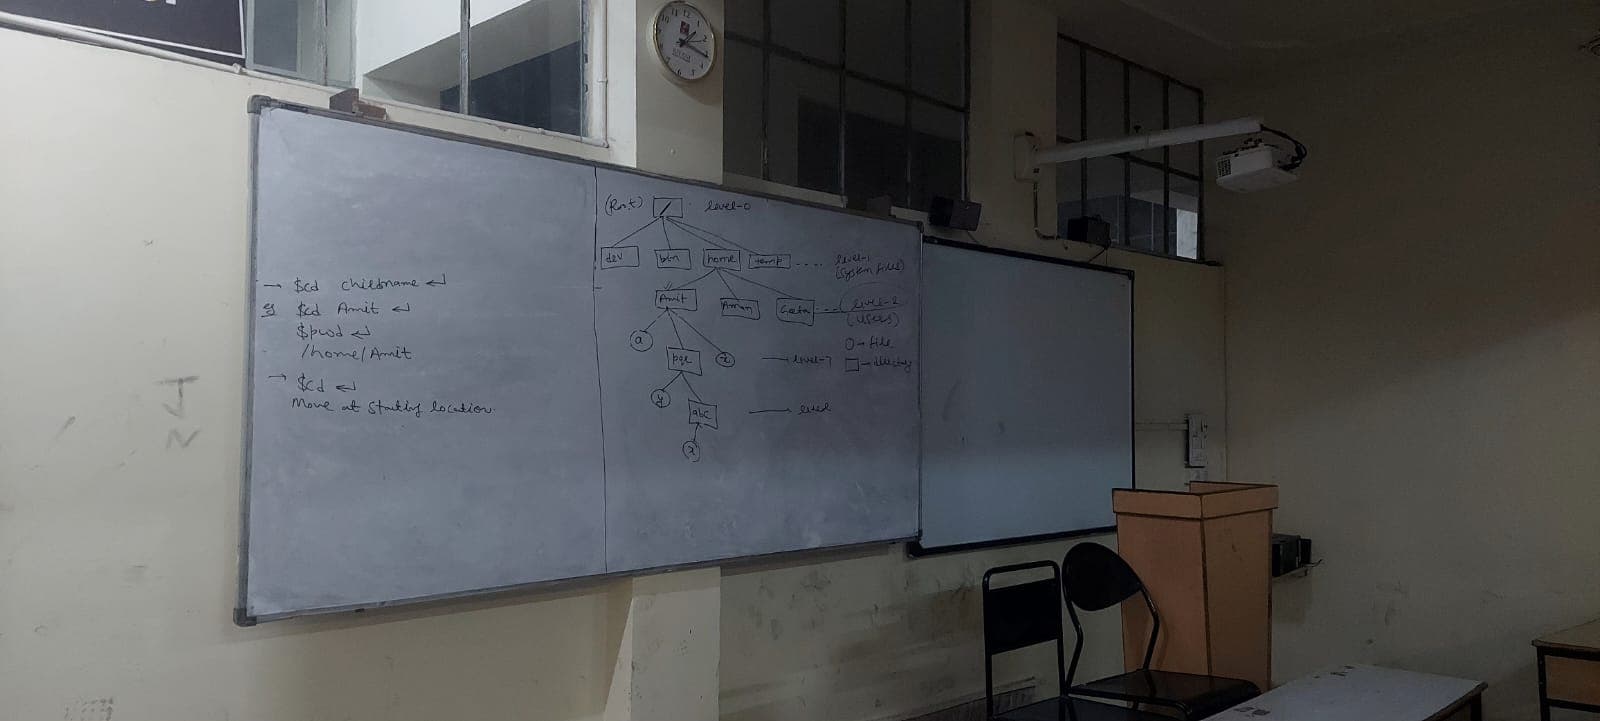 → $cd childname ↵
eg $cd Amit ↵
$pwd ↵
/home/Amit
→ $cd ↵
Move at starting location.
(Root) / level-0
dev bin home temp .... level-1
(system files)
Amit Aman Geeta ... (level-2
(users)
a
○→ file
pqr z level-3 □→ directory
y
abc level
x
12 1 2 3 4 5 6 7 10 11